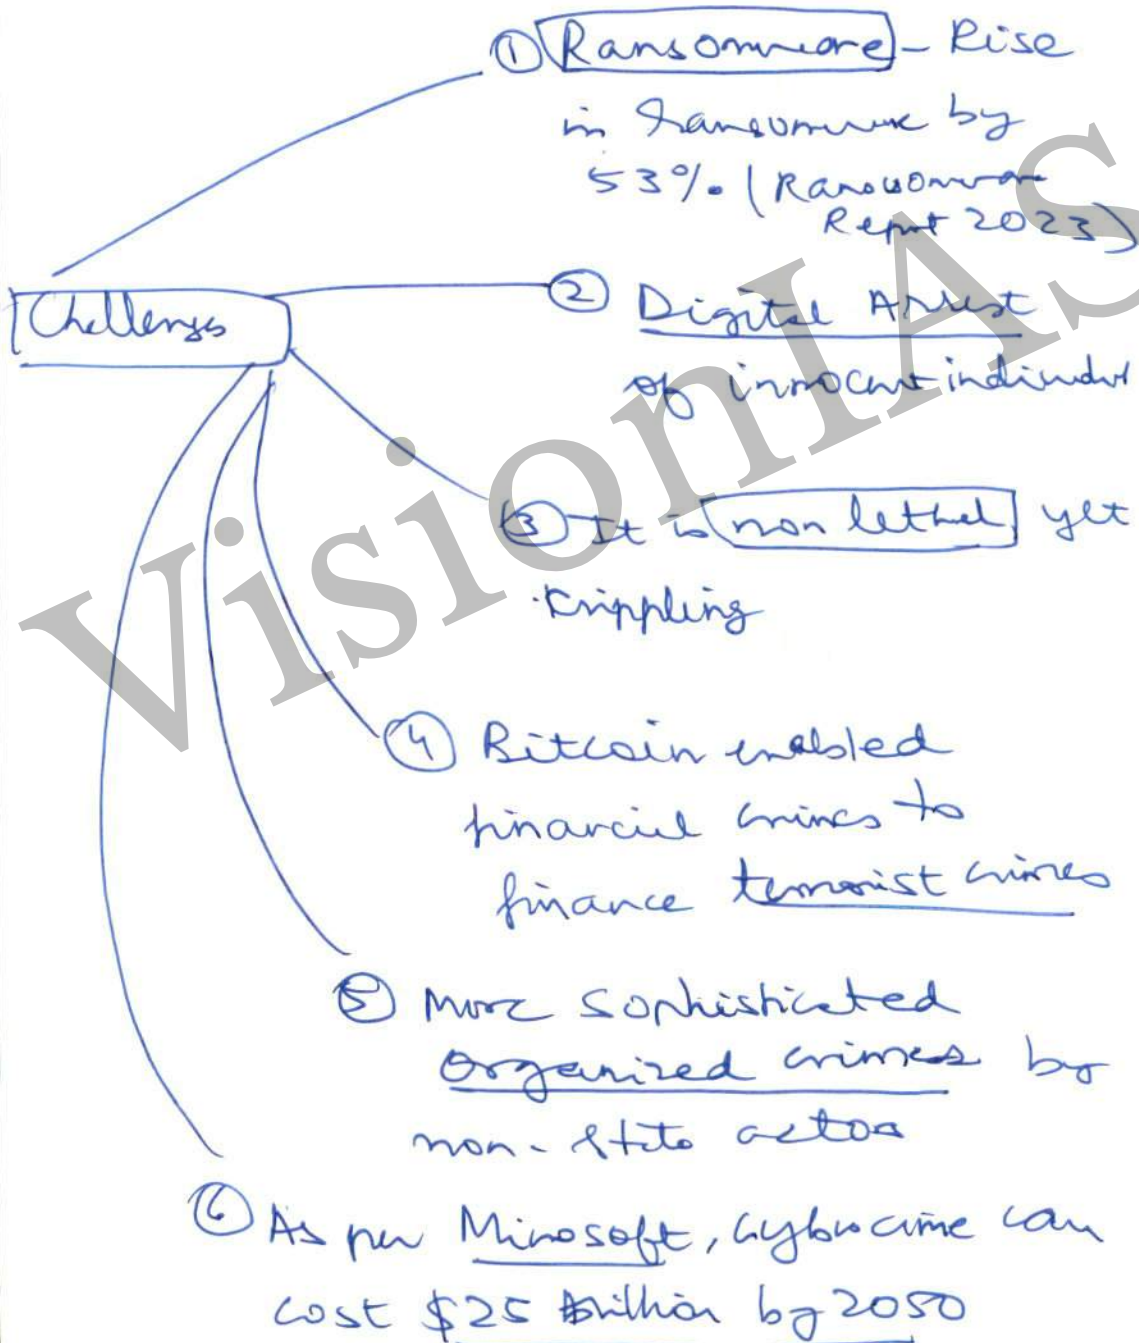 ① Ransomware - Rise
in ransomware by
53% (Ransomware
Report 2023)
Challenges
② Digital Arrest
of innocent individual
③ It is non lethal yet
krippling
④ Bitcoin enabled
financial crimes to
finance terrorist crimes
⑤ More Sophisticated
organized crimes by
non-state actors
⑥ As per Microsoft, cybercrime can
cost $25 by 2050
VisionIAS